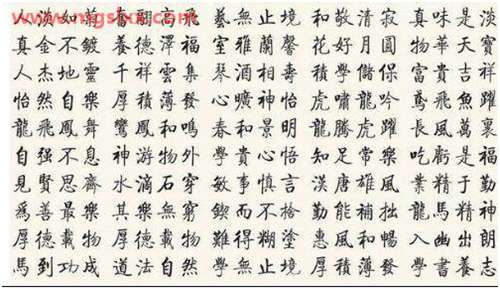 人淡如蘭 奮翮高飛 藝無止境 和敬清寂 真味是淡
真金不鍍 養德澤福 室雅蘭馨 花好月圓 物華天寶
人杰地靈 千祥雲集 琴酒相壽 積學儲保 富貴吉祥
怡然自樂 厚積薄發 心曠神怡 虎嘯龍吟 鳶飛魚躍
龍飛鳳舞 鸞鳳和鳴 春和景明 龍騰虎躍 長風萬裏
自强不息 神游物外 學貴心悟 知足常樂 吃虧是福
見賢思齊 水滴石穿 敏事慎言 漢唐雄風 業精于勤
爲善最樂 其樂無窮 鍥而不捨 勤能補拙 龍馬精神
厚德載物 厚德載物 難得糊塗 惠風和暢 入幽出朗
馬到功成 道法自然 學無止境 厚積薄發 學書養志